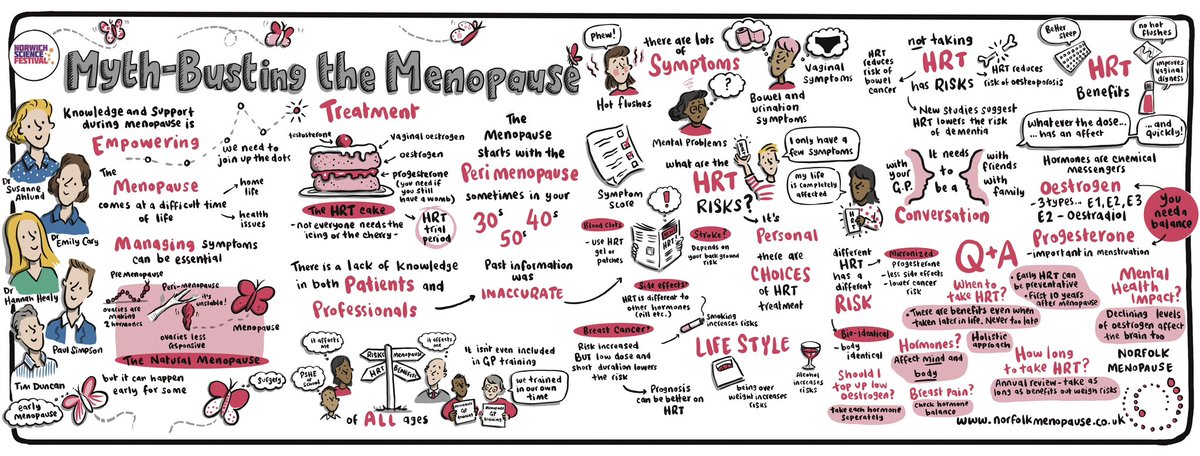 NORWICH
SCIENCE
FESTIVAL
Myth-Busting the Menopause
Knowledge and Support
during menopause is
Empowering
we need to
join up the dots
Dr
Susanne
Ahlund
The
Menopause
comes at a difficult time
of life
home
life
health
issues
Dr Emily Cary
Managing symptoms
can be essential
Dr
Hannah Healy
Premenopause
Peri-menopause
it's
unstable!
ovaries are
making
2 hormones
ovaries less
responsive
Menopause
The Natural Menopause
Paul Simpson
Tim Duncan
early
menopause
but it can happen
early for some
surgery
Treatment
testosterone
vaginal oestrogen
oestrogen
progesterone
(you need if
you still
have a womb)
The HRT cake
- not everyone needs the
icing or the cherry -
HRT
trial
period
There is a lack of knowledge
in both Patients and
Professionals
Past information
was
INACCURATE
it affects
me
PSHE
in
school
RISKS
menopause
HRT
BENEFITS
it affects
me
of ALL ages
It isn't even included
in GP training
Menopause
GP
training
we trained
in our own
time
The
Menopause
starts with the
Perimenopause
sometimes in your
30s 40s
50s
Phew!
Hot flushes
there are lots
of
Symptoms
?
Mental Problems
Bowel and
urination
symptoms
Vaginal
symptoms
Symptom
Score
what are the
HRT
RISKS?
I only have a
few symptoms
my life
is completely
affected
HRT
it's
Personal
there are
CHOICES
of HRT
treatment
Blood clots
- use HRT
gel or
patches
!
HRT
Stroke?
Depends on
your background
risk
Side effects
HRT is different to
other hormones
(pill etc.)
Breast Cancer?
Risk increased
BUT low dose and
short duration lowers
the risk
Prognosis
can be better on
HRT
Smoking
increases risks
LIFE STYLE
being over
weight increases
risks
Alcohol
increases
risks
not taking
HRT
has RISKS
HRT
reduces
risk of bowel
cancer
HRT reduces
risk of osteoporosis
New studies suggest
HRT lowers the risk
of dementia
Better
sleep
no hot
flushes
improves
vaginal
dryness
HRT
Benefits
whatever the dose...
...has an affect
...and
quickly!
with
your
G.P.
It needs
to be a
with
friends
with
family
Conversation
Hormones are chemical
messengers
Oestrogen
- 3 types... E1, E2, E3
E2 - Oestradiol
Progesterone
- important in menstruation
You
need a
balance
different
HRT has a
different
RISK
Micronized
progesterone
- less side effects
- lower cancer
risk
Bio-identical
- body
identical
Q+A
When to
take HRT?
• Early HRT can
be preventative
• First 10 years
after menopause
• There are benefits even when
taken later in life. Never too late
Hormones?
Affect mind and
body
Holistic
approach
Should I
top up low
oestrogen?
take each hormone
seperately
Breast pain?
check hormone
balance
How long
to take HRT?
Annual review - take as
long as benefits out weigh risks
Mental
Health
Impact?
Declining levels
of oestrogen affect
the brain too
NORFOLK
MENOPAUSE
www.norfolkmenopause.co.uk